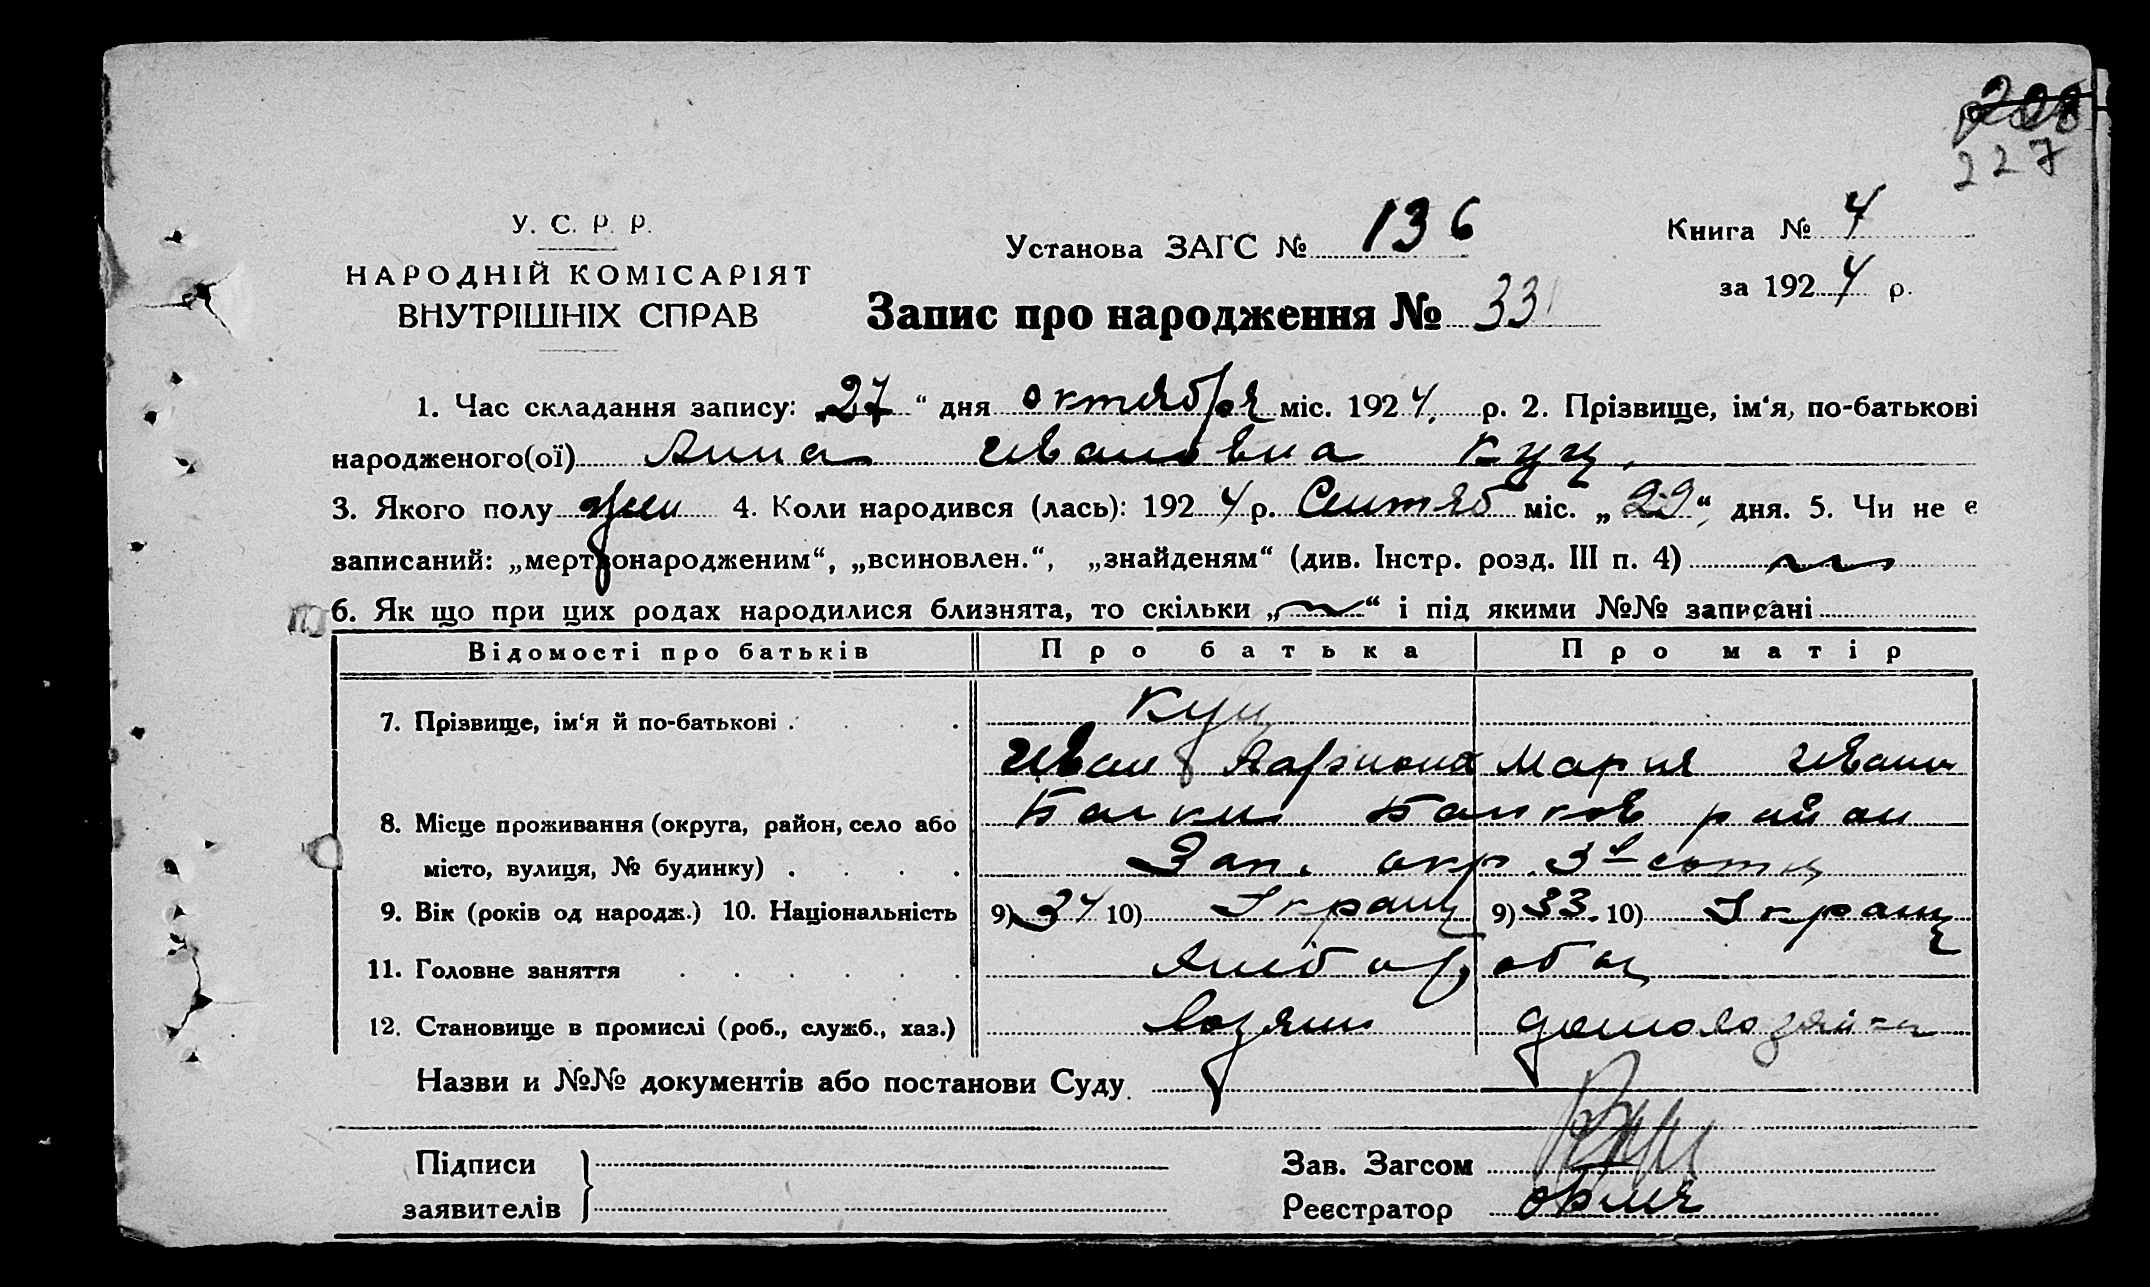 208
227
У. С. Р. Р.
НАРОДНІЙ КОМІСАРІЯТ
ВНУТРІШНІХ СПРАВ
Установа ЗАГС № 136
Книга № 4
за 1924 р.
Запис про народження № 331
1. Час складання запису: „27“ дня октября міс. 1924. р. 2. Прізвище, ім‘я, по-батькові
народженого(ої) Анна Ивановна Куц
3. Якого полу жен 4. Коли народився (лась): 1924 р. Сентяб міс. „29“ дня. 5. Чи не є
записаний: „мертвонародженим“, „всиновлен.“, „знайденям“ (див. Інстр. розд. III п. 4)
6. Як що при цих родах народилися близнята, то скільки „ “ і під якими №№ записані
Відомості про батьків Про батька Про матір
7. Прізвище, ім‘я й по-батькові Куц
Иван Мария Иванов
8. Місце проживання (округа, район, село або Балки Балков район
місто, вулиця, № будинку) Зап. окр. 3й сотні
9. Вік (років од народж.) 10. Національність 9) 34 10) Украин 9) 33. 10) Украин
11. Головне заняття хлібороб
12. Становище в промислі (роб., служб., хаз.) хозяин домохозяйка
Назви и №№ документів або постанови Суду
Підписи
заявителів
Зав. Загсом
Реєстратор